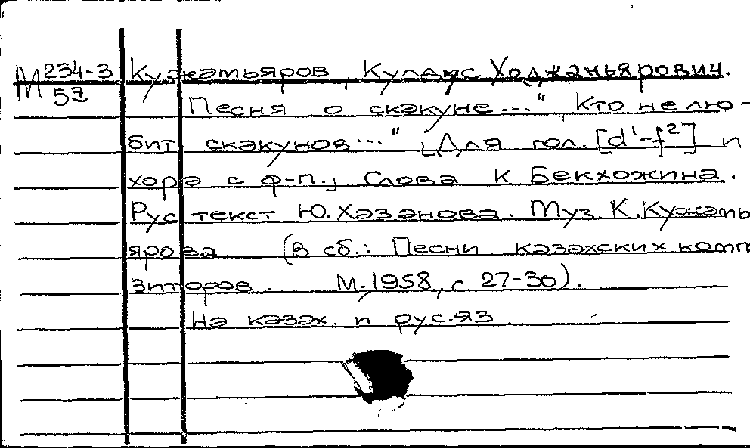 М 234-3 Кужамьяров, Куддус Ходжамьярович.
57 Песня о скакуне..." Кто не лю-
бит скакунов..." [Для гол. [d¹-f²] и
хора с ф-п.; Слова К. Бекхожина.
Рус текст Ю. Хазанова. Муз. К. Кужамь
ярова (в сб.: Песни казахских компо
зиторов. М., 1958, с 27-30).
На казах. и рус. яз